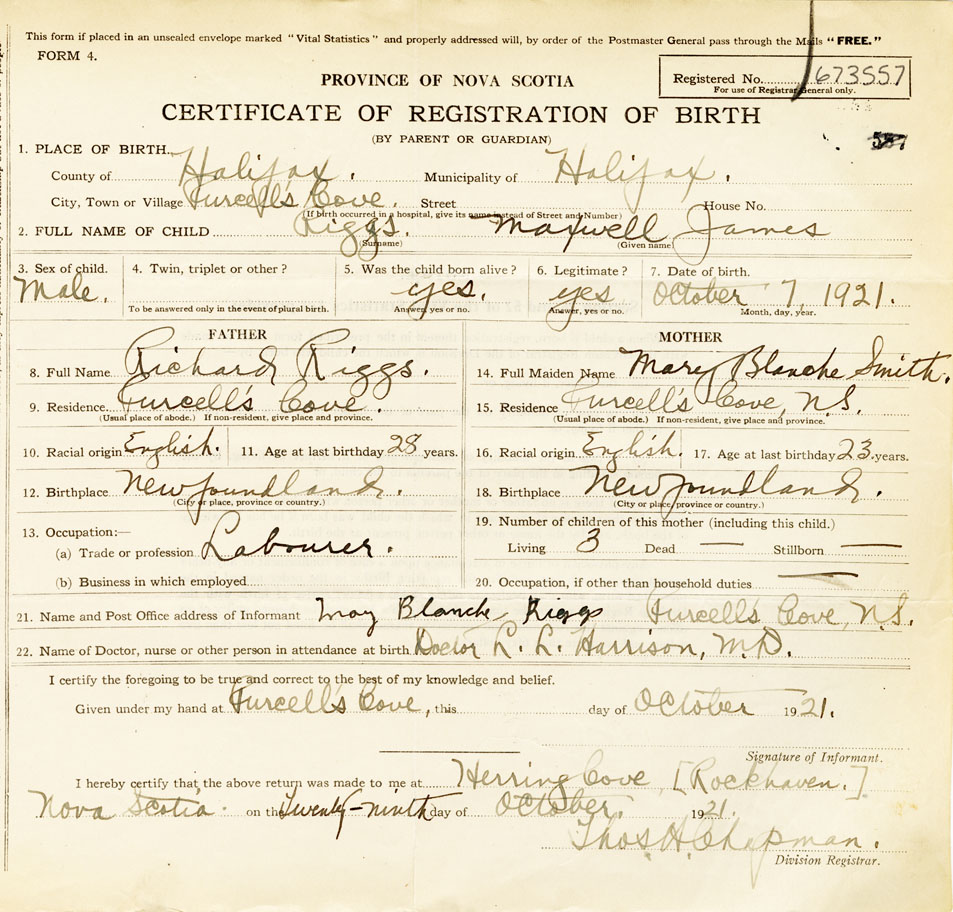 This form if placed in an unsealed envelope marked "Vital Statistics" and properly addressed will, by order of the Postmaster General pass through the Mails "FREE."
FORM 4.
PROVINCE OF NOVA SCOTIA
Registered No. 673557
For use of Registrar General only.
CERTIFICATE OF REGISTRATION OF BIRTH
(BY PARENT OR GUARDIAN)
1. PLACE OF BIRTH.
County of Halifax. Municipality of Halifax.
City, Town or Village Furcell's Cove. Street House No.
(If birth occurred in a hospital, give its name instead of Street and Number)
2. FULL NAME OF CHILD Riggs. Maxwell James
(Surname) (Given name)
3. Sex of child. 4. Twin, triplet or other? 5. Was the child born alive? 6. Legitimate? 7. Date of birth.
Male. yes. yes October 7, 1921.
To be answered only in the event of plural birth. Answer, yes or no. Answer, yes or no. Month, day, year.
FATHER MOTHER
8. Full Name Richard Riggs. 14. Full Maiden Name Mary Blanche Smith.
9. Residence Furcell's Cove. 15. Residence Furcell's Cove, N.S.
(Usual place of abode.) If non-resident, give place and province. (Usual place of abode.) If non-resident, give place and province.
10. Racial origin English. 11. Age at last birthday 28 years. 16. Racial origin English. 17. Age at last birthday 23 years.
12. Birthplace Newfoundland. 18. Birthplace Newfoundland.
(City or place, province or country.) (City or place, province or country.)
13. Occupation:— 19. Number of children of this mother (including this child.)
(a) Trade or profession Labourer. Living 3 Dead — Stillborn —
(b) Business in which employed 20. Occupation, if other than household duties —
21. Name and Post Office address of Informant May Blanche Riggs Furcell's Cove, N.S.
22. Name of Doctor, nurse or other person in attendance at birth Doctor L. L. Harrison, M.D.
I certify the foregoing to be true and correct to the best of my knowledge and belief.
Given under my hand at Furcell's Cove, this day of October 1921.
Signature of Informant.
I hereby certify that the above return was made to me at Herring Cove, [Rockhaven.]
Nova Scotia on the Twenty-ninth day of October. 1921.
Thos. H. Chapman.
Division Registrar.